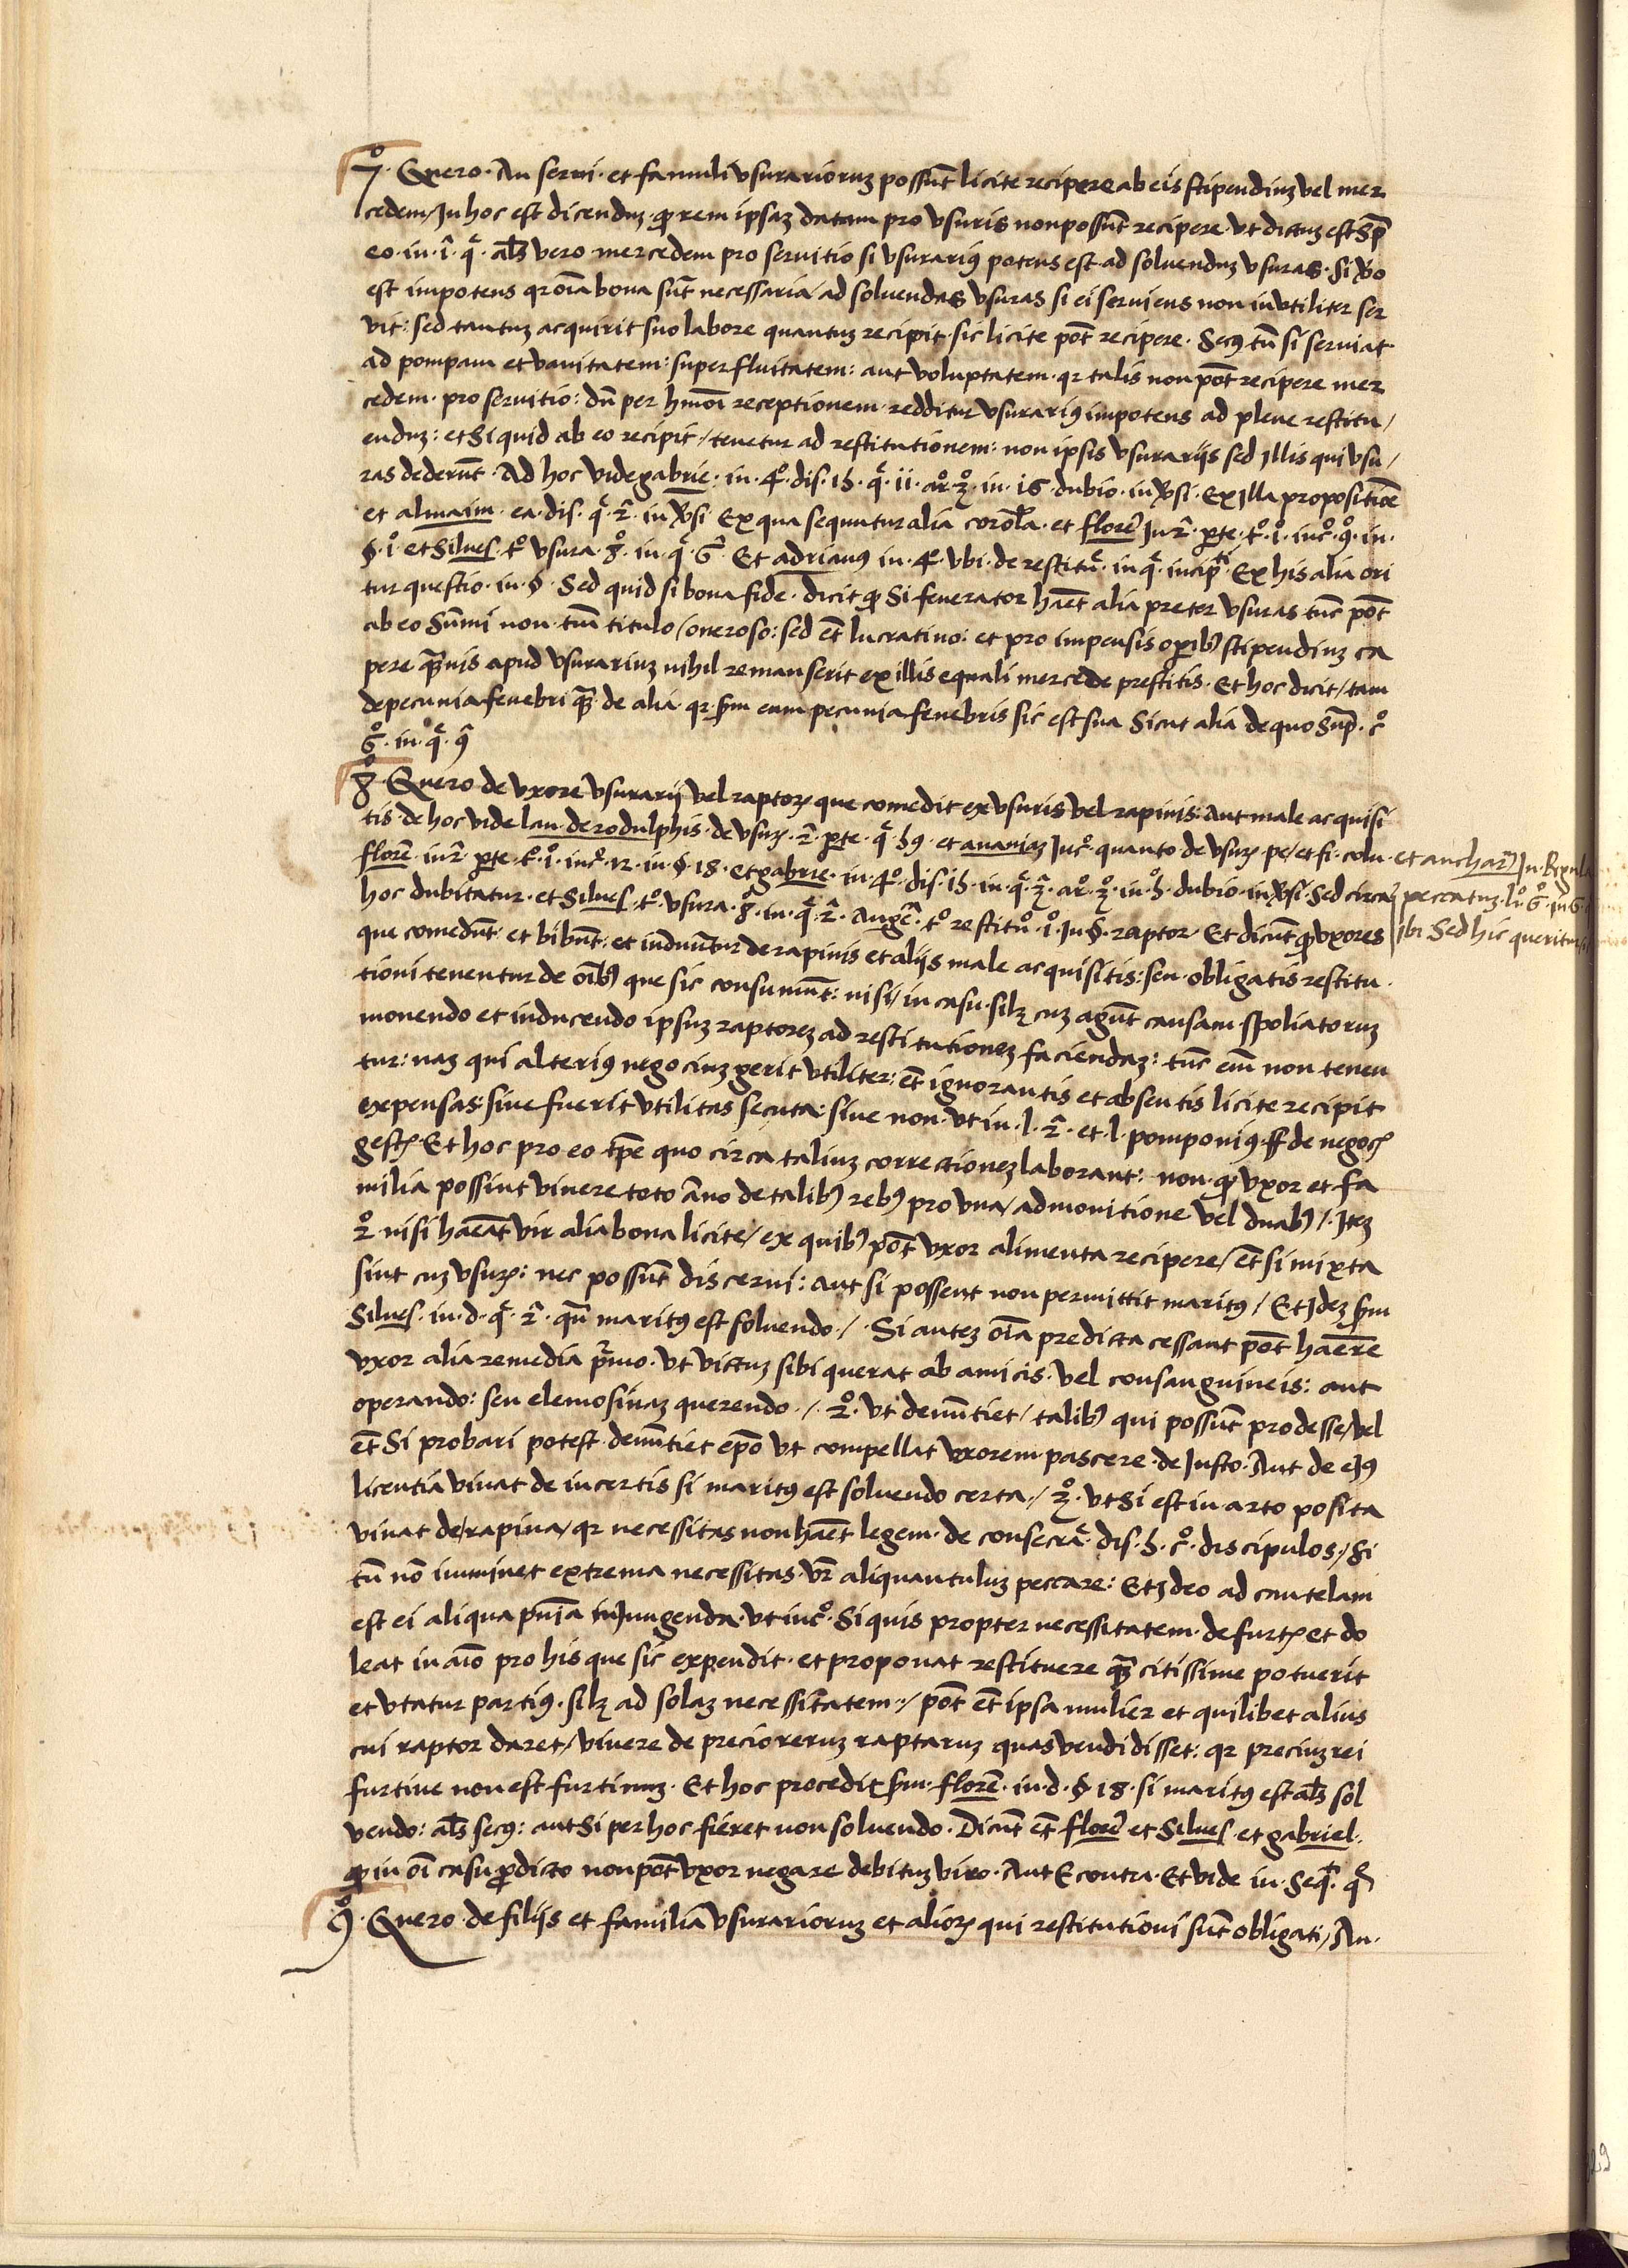 7º. Quero. An servi. et famuli vsurariorum possũt licite recipere ab eis stipendiuz vel mer
cedem / In hoc est dicenduz. ꝙ rem ipsaz datam pro vsuris non possũt recipere. vt dictuz est Sup̃
eo. in. i. q̃. als̃ vero mercedem pro servitio si vsurariꝰ potens est ad solvenduz vsuras. si ṽo
est impotens qr oĩa bona sũt necessaria / ad solvendas vsuras si ei serviens non inutiliter ser
vit: sed tantuz acquirit suo labore quantuz recipit. sic licite põt recipere. Secꝰ tñ si serviat
ad pompam et vanitatem: superfluitatem: aut voluptatem. qr talis non põt recipere mer
cedem. pro servitio: dũ per hmõi receptionem redditur vsurariꝰ impotens ad plene restitu /
enduz: et si quid ab eo recipit / tenetur ad restitutionem: non ipsis vsurarijs sed Illis qui vsu /
ras dederũt. Ad hoc vide gabrie. in. 4º. dis. 15. q̃. ii. ar. 3º. in. 16. dubio. in ꝟsi. Ex Illa propositiõe
et almaim. ea. dis. q̃. 2ª. in ꝟsi Ex qua sequntur alia corol̃a. et florẽ In 2ª. pᵉte. tº. iº. in cº. 9º. in.
§. iº. et Silves. tº vsura. 8º. in. q̃. 6ª. Et adrianus in. 4º. vbi. de restitũ. in q̃. incip̃ti. Ex his alia ori
tur questio. in. §. Sed quid si bona fide. dicit ꝙ Si fenerator hãet alia preter vsuras tũc põt
ab eo Sũmi non tm̃ titulo / oneroso: sed ẽt lucrativo: et pro impensis oꝑibꝰ stipendiuz ca
pere quãvis apud vsurariuz nihil remanserit ex illis equali mercede prestitis. Et hoc dicit / tam
de pecunia fenebri quã de alia. qr sm eum pecunia fenebris sic est sua Sicut alia de quo Sup̃. cº
6º. in. q̃. 9ª
8º. Quero de vxore vsurarij vel raptorꝝ que comedit ex vsuris vel rapinis. Aut male acquisi
tis. de hoc vide lau. de rodulphis. de vsurꝝ. 2ª. pᵉte. q̃. 59. et ananiaz In cº. quanto de vsurꝝ. pe / et fi. colu. et anchar̃. In. Regula
florẽ. in 2ª. pᵉte. tº. iº. in cº. 12. in. §. 18. et gabrie. in. 4º. dis. 15. in. q̃. 3ª. ar. 3º. in. 5º. dubio. in ꝟsi. Sed circa peccatuz. li. 6º. in 6
hoc dubitatur. et Silves. tº. vsura. 8ª. in. q̃. 2ª. Angẽ. tº restitũ. iº. In §. raptor. Et dicũt ꝙ vxores ibi Sed hic queritur
que comedũt. et bibũt. et induũtur de rapinis et alijs male acquisitis: seu. obligatis restitu.
tioni tenentur de oĩbꝰ que sic consumũt: nisi / in casu. silꝫ cuz agũt causam spoliatoruz
monendo et inducendo ipsuz raptorez ad restitutionez faciendaz: tũc em̃ non tenen
tur: naz qui alteriꝰ negociuz gerit vtiliter: ẽt ignorantis et absentis licite recipit
expensas: sive fuerit vtilitas secuta: sive non. vt in. l. 2ª. et. l. pomponiꝰ. ff. de negocꝝ
gestꝝ. Et hoc pro eo tp̃e quo circa taliuz correctionez laborant: non. ꝙ vxor et fa
milia possint vivere toto ãno de talibꝰ rebꝰ pro vna / admonitione vel duabꝰ /. Itez
2º. nisi hãeat vir alia bona licite / ex quibꝰ põt vxor alimenta recipere / ẽt si mixta
sint cuz vsurꝝ: nec possũt discerni: aut si possent non permittit maritꝰ / Et Idez sm
Silves. in. d. q̃. 2ª. qñ maritꝰ est solvendo. /. Si autez oĩa predicta cessant põt haẽre
vxor alia remedia p̃mo. vt victuz sibi querat ab amicis. vel consanguineis: aut
operando: seu elemosinaz querendo. /. 2º. vt denũtiet / talibꝰ qui possũt prodesse / vel
ẽt Si probari potest. denũtiet ep̃o vt compellat vxorem pascere. de Iusto. Aut de eiꝰ
licentia vivat de incertis si maritꝰ est solvendo certa. / 3º. vt si est in arto posita
vivat de / rapina / qr necessitas non hãet legem. de consecrã. dis. 5. cº. discipulos. / Si
tñ nõ imminet extrema necessitas. vr̃ aliquantuluz peccare: Et Ideo ad cautelam
est ei aliqua pñia inIungenda. vt in cº. Si quis propter necessitatem. de furtꝝ et do
leat in aĩo pro his que sic expendit. et proponat restituere quã citissime potuerit
et vtatur partiꝰ. silꝫ ad solaz necessitatem. / põt ẽt ipsa mulier et quilibet alius
cui raptor daret / vivere de precio reruz raptaruz quas vendidisset: qr preciuz rei
furtive non est furtivuz. Et hoc procedit sm. florẽ. in. d. §. 18. si maritꝰ est als̃ sol
vendo: als̃ secꝰ: aut Si per hoc fieret non solvendo. Dicũt ẽt florẽ et Silves. et gabriel.
ꝙ in oĩ casu p̃dicto non põt vxor negare debituz viro. Aut E contra. Et vide in. Seq̃. q̃
9º. Quero. de filijs et familia vsurarioruz et aliorꝝ qui restitutioni sũt obligati / An.
29